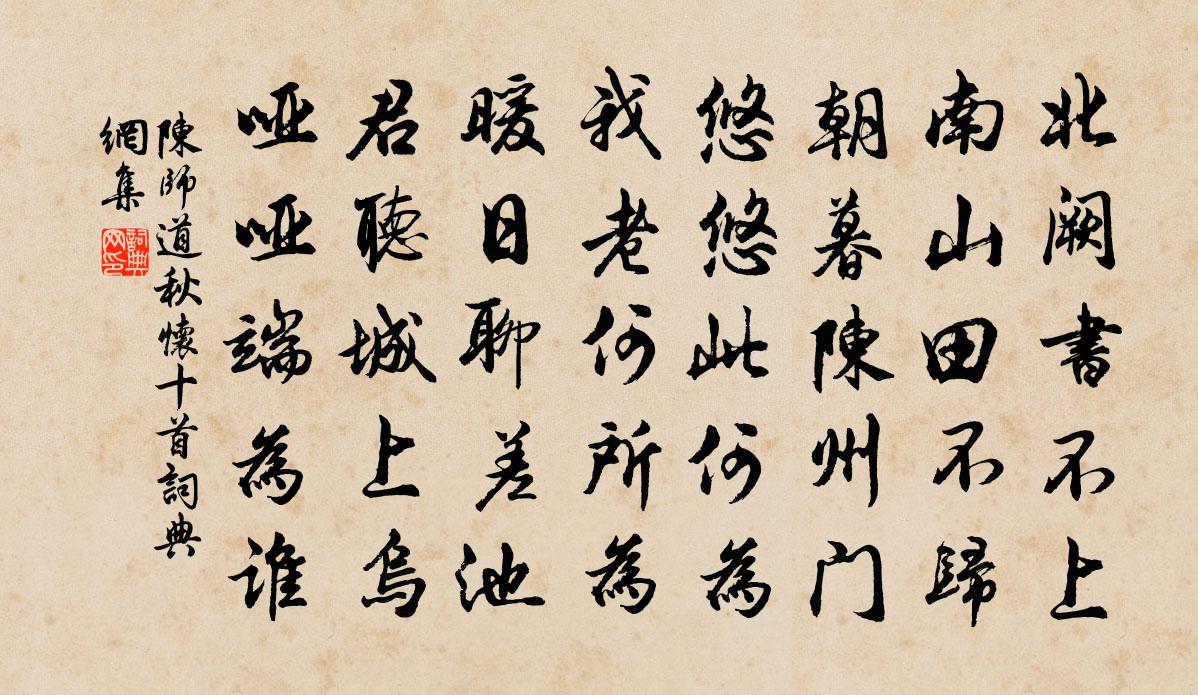 北闕書不上
南山田不歸
朝暮陳州門
悠悠此何為
我老何所為
暖日聊差池
君聽城上烏
啞啞端為誰
陳師道秋懷十首詞典
網集
詞典网印